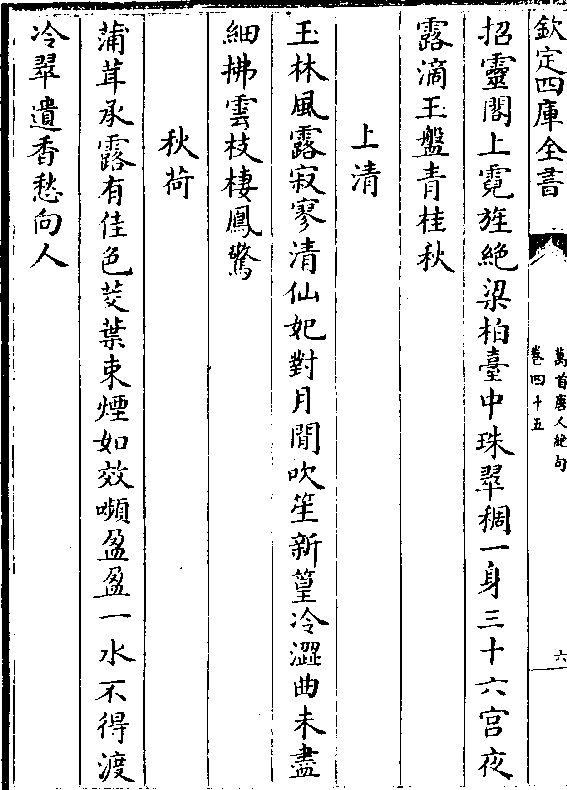 欽定四庫全書
萬首唐人絶句
卷四十五
六
招靈閣上霓旌絶梁柏臺中珠翠稠一身三十六宫夜
露滴玉盤青桂秋
上清
玉林風露寂寥清仙妃對月閒吹笙新篁冷澀曲未盡
細拂雲枝棲鳳驚
秋荷
蒲茸承露有佳色茭葉束煙如效嚬盈盈一水不得渡
冷翠遺香愁向人